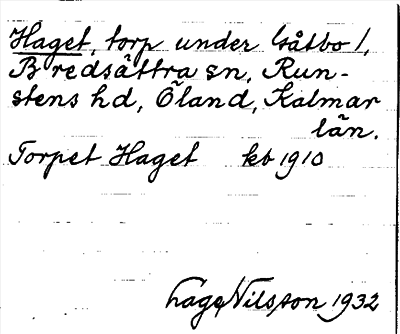 Haget, torp under Gåtbo 1,
Bredsättra sn, Run-
stens hd, Öland, Kalmar
län.
Torpet Haget kb 1910
Lage Nilsson 1932